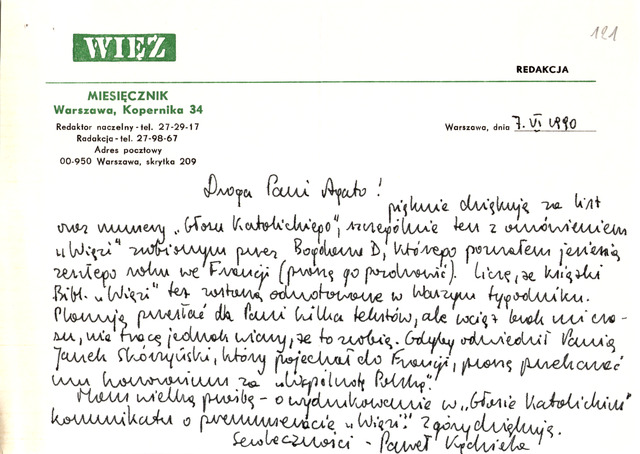 121
WIĘŹ
REDAKCJA
MIESIĘCZNIK
Warszawa, Kopernika 34
Redaktor naczelny - tel. 27-29-17
Redakcja - tel. 27-98-67
Adres pocztowy
00-950 Warszawa, skrytka 209
Warszawa, dnia 7. VI 1990
Droga Pani Agato!
pięknie dziękuję za list
oraz numery „Głosu Katolickiego", szczególnie ten z omówieniem
„Więzi" zrobionym przez Bogdana D, którego poznałem jesienią
zeszłego roku we Francji (proszę go pozdrowić). Liczę, że książki
Bibl. „Więzi" też zostaną odnotowane w Waszym tygodniku.
Planuję przesłać dla Pani kilka tekstów, ale wciąż brak mi cza-
su, nie tracę jednak wiary, że to zrobię. Gdyby odwiedził Panią
Janek Skórzyński, który pojechał do Francji, proszę przekazać
mu honorarium za „Wspólnotę Polską".
Mam wielką prośbę - o wydrukowanie w „Głosie Katolickim"
komunikatu o prenumeracie „Więzi". Z góry dziękuję.
Serdeczności - Paweł Kądziela